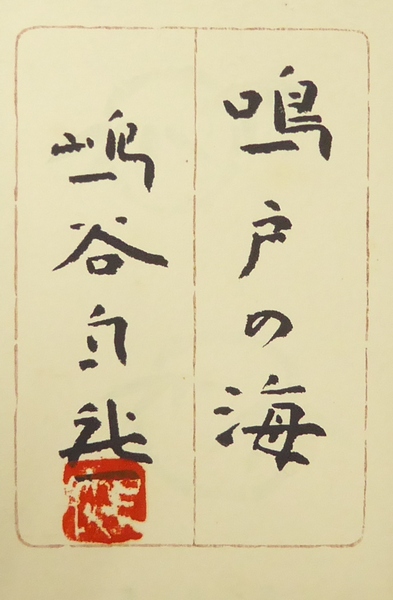 鳴戸の海
嶋谷自然